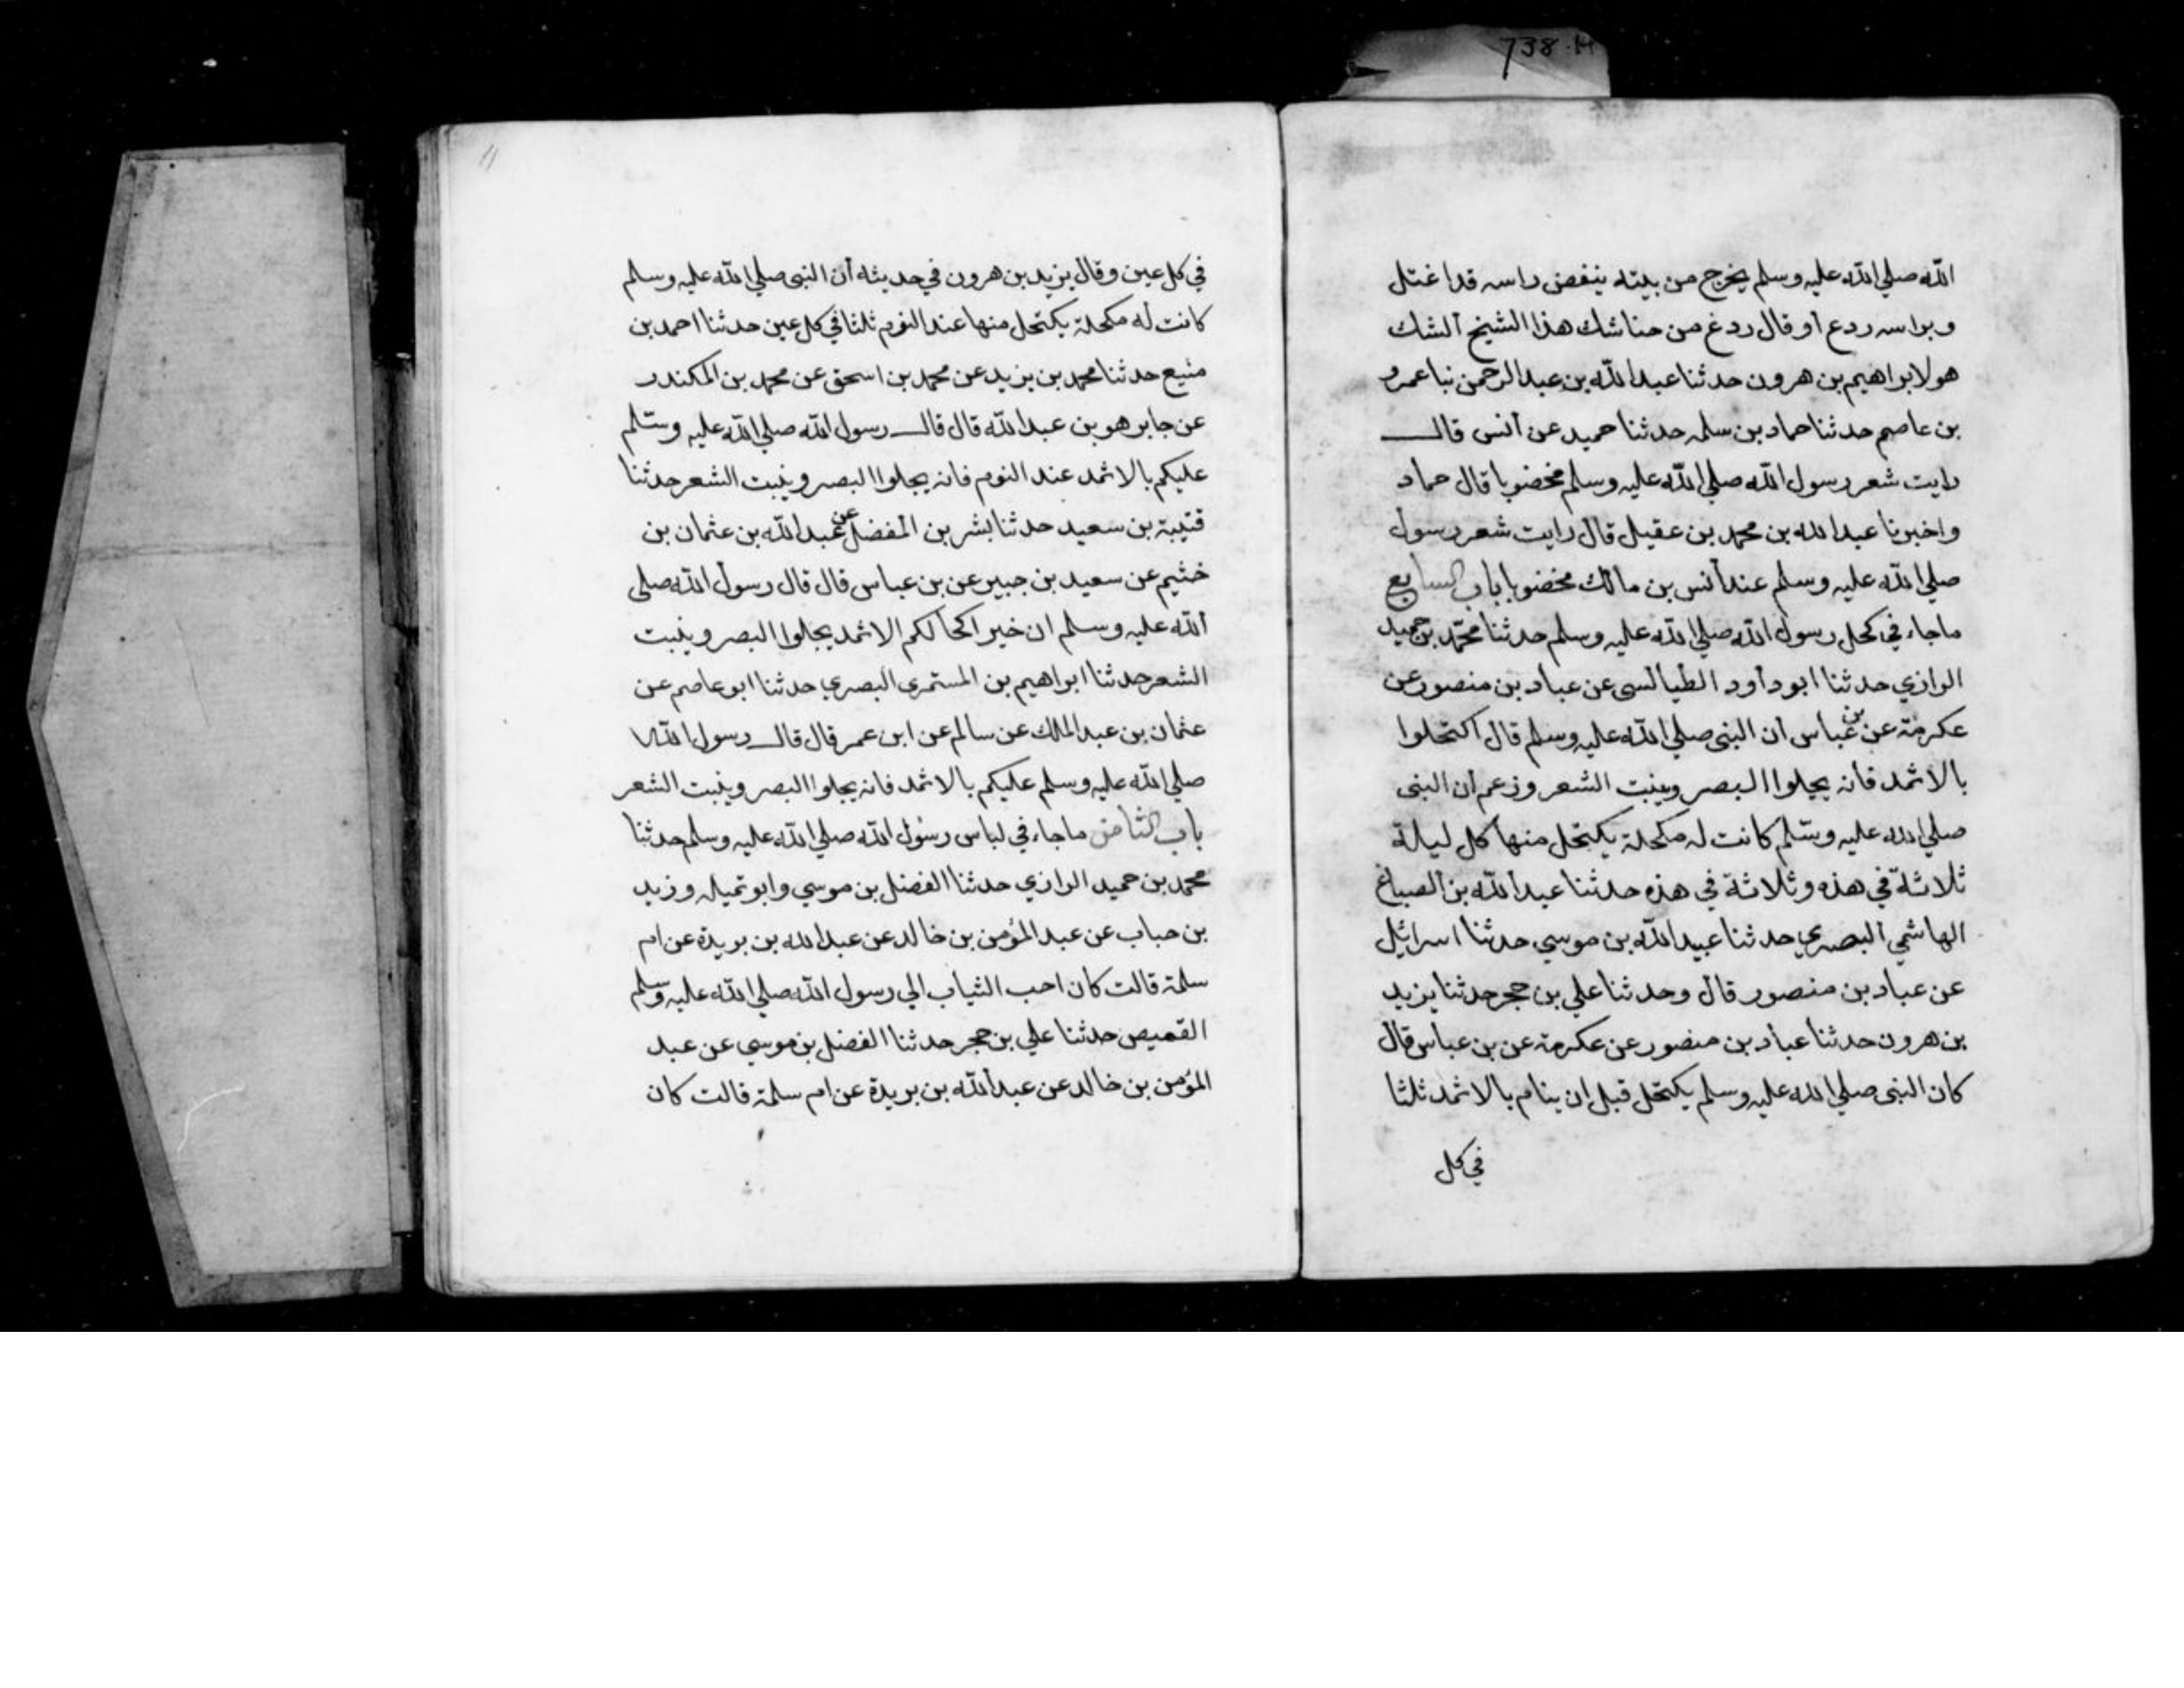 738.H
الله صلي الله عليه وسلم يخرج من بيته ينفض راسه قد اغتسل
وبراسه ردع او قال ردغ من حنا شك هذا الشيخ الشك
هو لابراهيم بن هرون حدثنا عبد الله بن عبد الرحمن نبا عمرو
بن عاصم حدثنا حماد بن سلمه حدثنا حميد عن أنس قال
رايت شعر رسول الله صلي الله عليه وسلم مخضوبا قال حماد
واخبرنا عبد الله بن محمد بن عقيل قال رايت شعر رسول
صلي الله عليه وسلم عند أنس بن مالك مخضوبا باب السابع
ما جاء في كحل رسول الله صلي الله عليه وسلم حدثنا محمد بن حميد
الرازي حدثنا ابو داود الطيالسي عن عباد بن منصور عن
عكرمة عن بن عباس أن النبي صلي الله عليه وسلم قال اكتحلوا
بالاثمد فانه يجلوا البصر وينبت الشعر وزعم أن النبي
صلي الله عليه وسلم كانت له مكحلة يكتحل منها كل ليلة
ثلاثة في هذه وثلاثة في هذه حدثنا عبد الله بن الصباغ
الهاشمي البصري حدثنا عبيد الله بن موسي حدثنا اسرائيل
عن عباد بن منصور قال وحدثنا علي بن حجر حدثنا يزيد
بن هرون حدثنا عباد بن منصور عن عكرمة عن بن عباس قال
كان النبي صلي الله عليه وسلم يكتحل قبل ان ينام بالاثمد ثلثا
في كل
11
في كل عين وقال يزيد بن هرون في حديثه أن النبي صلي الله عليه وسلم
كانت له مكحلة يكتحل منها عند النوم ثلثا في كل عين حدثنا احمد بن
منيع حدثنا محمد بن يزيد عن محمد بن اسحق عن محمد بن المكندر
عن جابر هو بن عبد الله قال قال رسول الله صلي الله عليه وسلم
عليكم بالاثمد عند النوم فانه يجلوا البصر وينبت الشعر حدثنا
قتيبة بن سعيد حدثنا بشر بن المفضل عن عبد الله بن عثمان بن
خثيم عن سعيد بن جبير عن بن عباس قال قال رسول الله صلي
الله عليه وسلم ان خير اكحالكم الاثمد يجلوا البصر وينبت
الشعر حدثنا ابراهيم بن المستمري البصري حدثنا ابو عاصم عن
عثمان بن عبد الملك عن سالم عن ابن عمر قال قال رسول الله
صلي الله عليه وسلم عليكم بالاثمد فانه يجلوا البصر وينبت الشعر
باب الثامن ما جاء في لباس رسول الله صلي الله عليه وسلم حدثنا
محمد بن حميد الرازي حدثنا الفضل بن موسي وابو تميله وزيد
بن حباب عن عبد المؤمن بن خالد عن عبد الله بن بريدة عن ام
سلمة قالت كان احب الثياب الي رسول الله صلي الله عليه وسلم
القميص حدثنا علي بن حجر حدثنا الفضل بن موسي عن عبد
المؤمن بن خالد عن عبد الله بن بريدة عن ام سلمة قالت كان